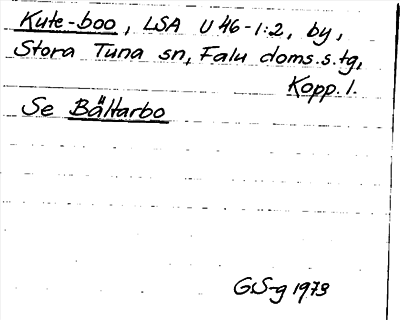 Kute-boo, LSA U 46-1:2, by,
Stora Tuna sn, Falu doms.s.tg,
Kopp. l.
Se Bältarbo
GS-g 1973